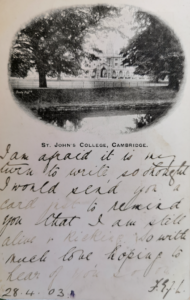 ST. JOHN'S COLLEGE, CAMBRIDGE.
I am afraid it is my
turn to write so thought
I would send you a
card just to remind
you that I am still
alive & kicking. So with
much love hoping to
hear of
28.4.03